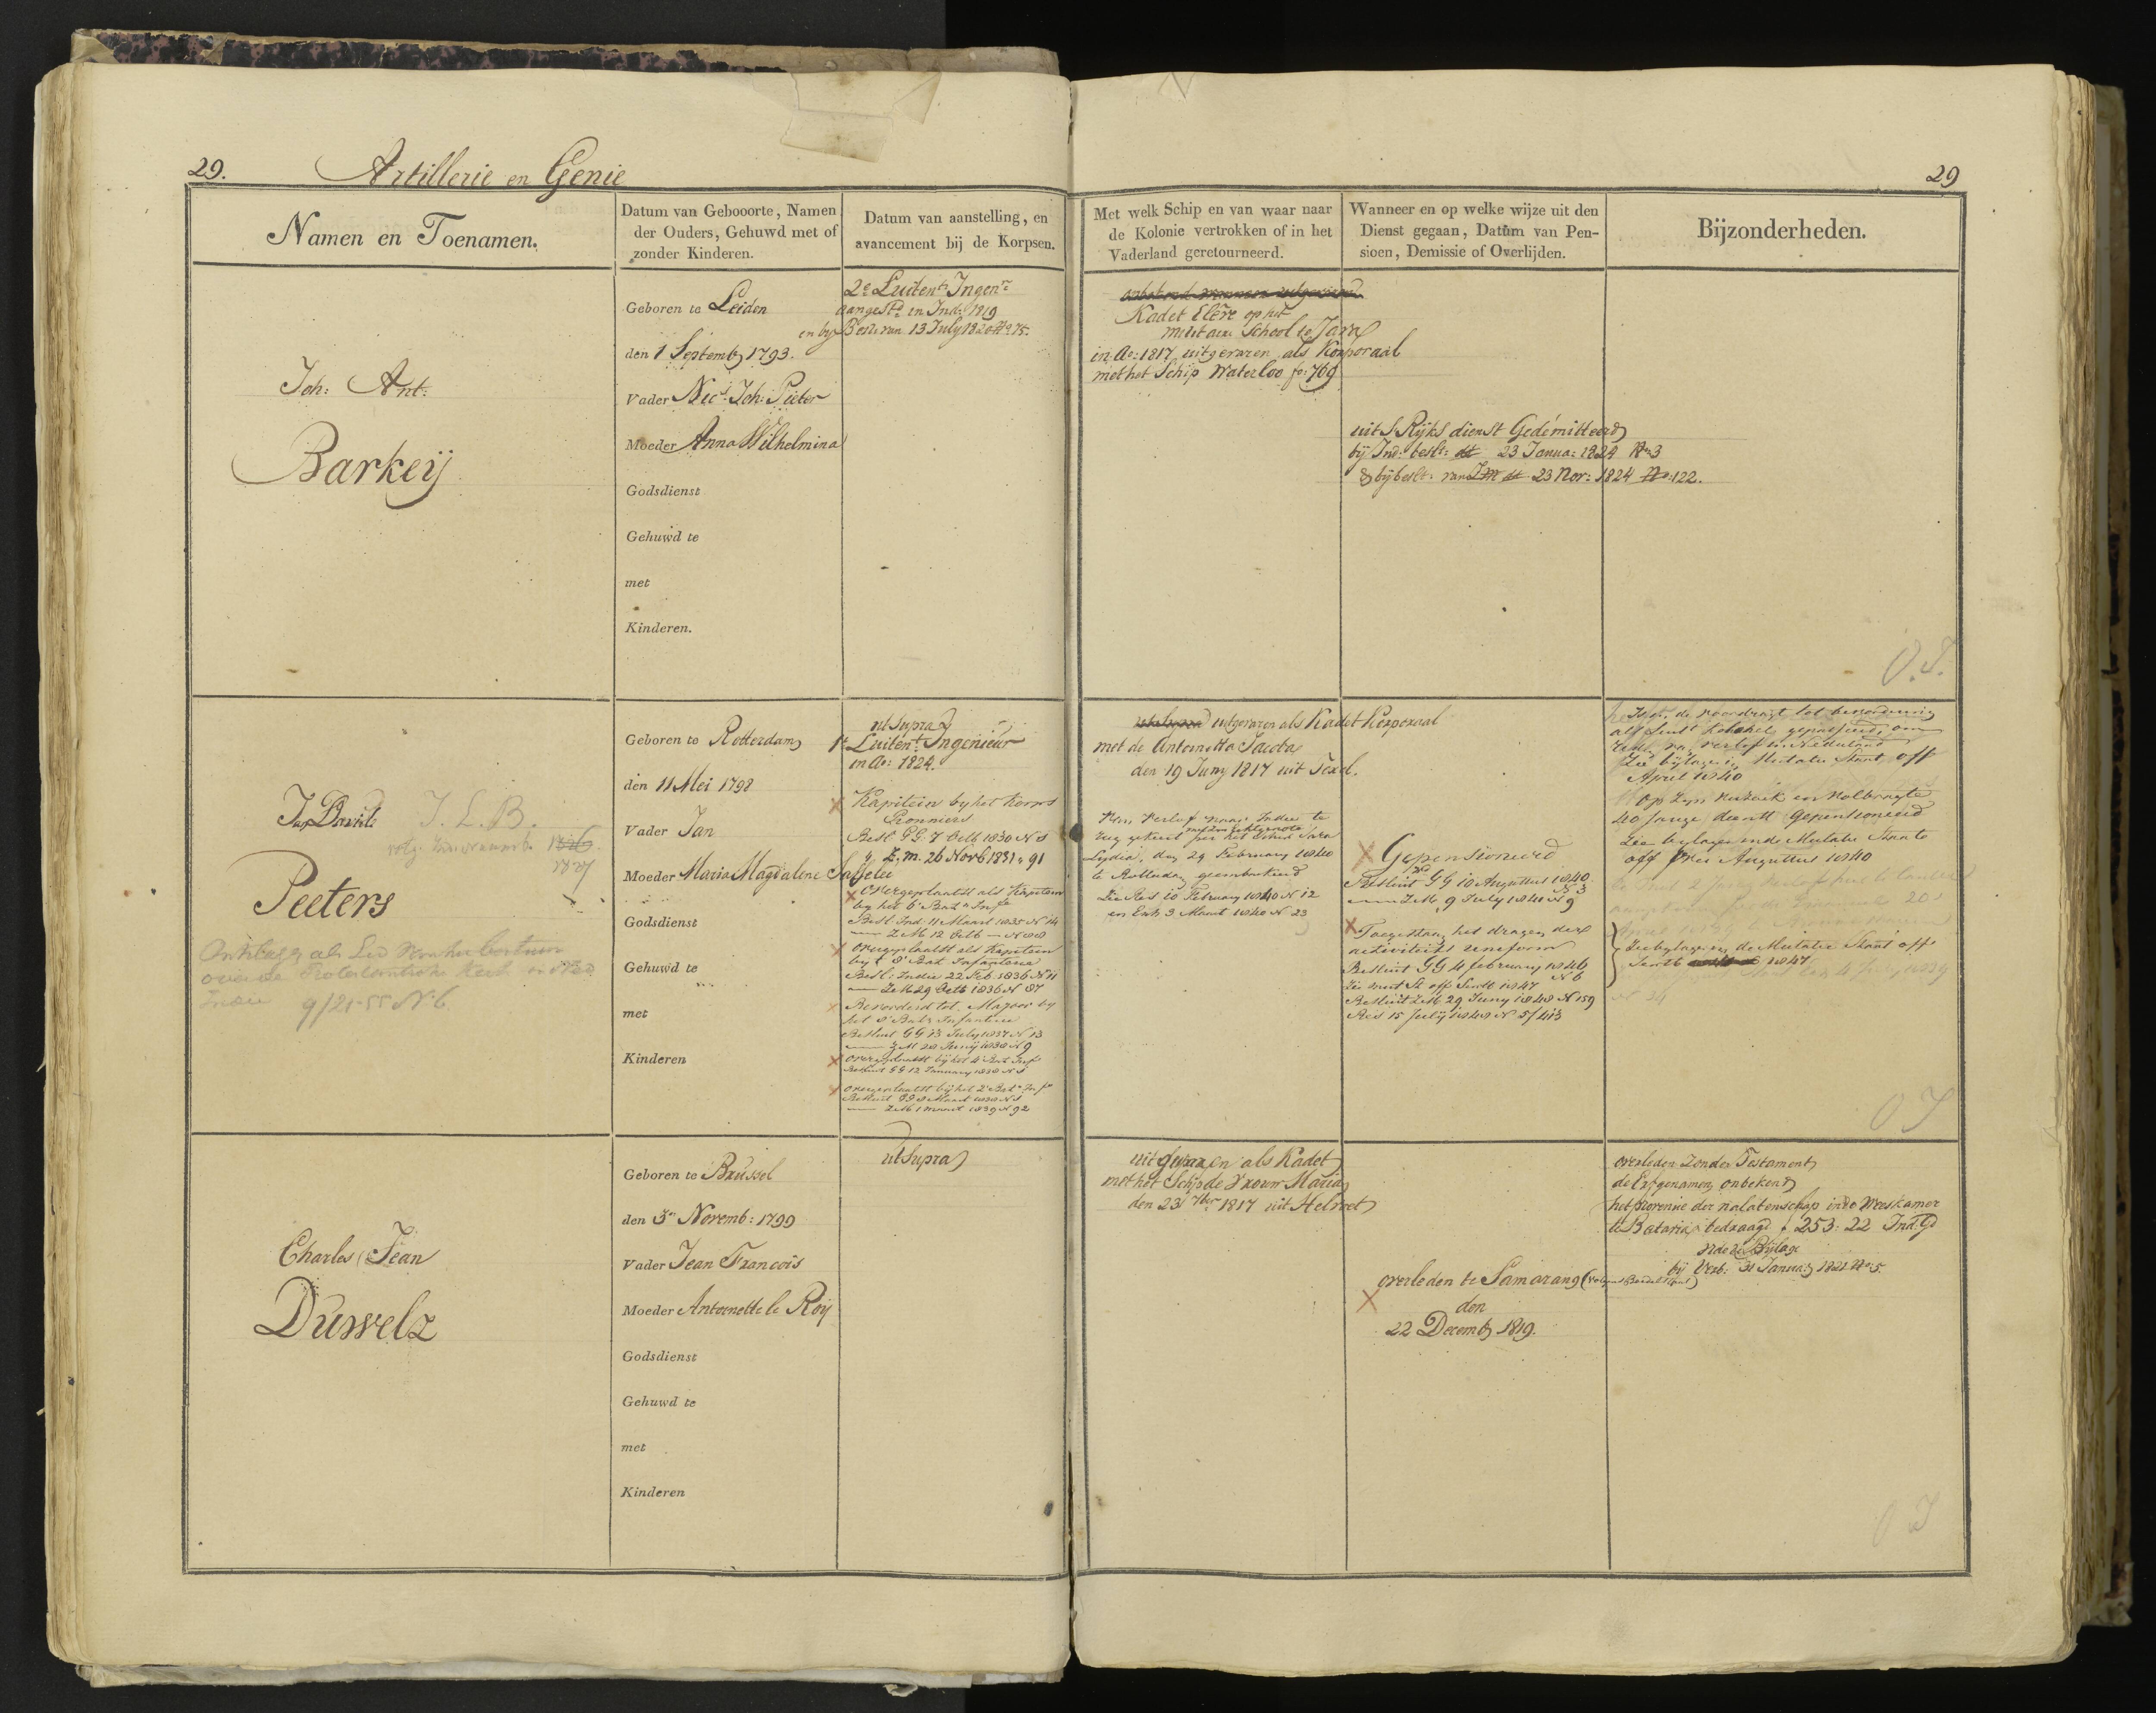 29.
Artillerie en Genie
29
Namen en Toenamen.
Datum van Gebooorte, Namen
der Ouders, Gehuwd met of
zonder Kinderen.
Datum van aanstelling, en
avancement bij de Korpsen.
Met welk Schip en van waar naar
de Kolonie vertrokken of in het
Vaderland geretourneerd.
Wanneer en op welke wijze uit den
Dienst gegaan, Datum van Pen-
sioen, Demissie of Overlijden.
Bijzonderheden.
Joh: Ant:
Barkeij
Geboren te Leiden
den 1 Septemb 1793.
Vader Nics. Joh: Pieter
Moeder Anna Wilhelmina
Godsdienst
Gehuwd te
met
Kinderen.
2e Luitent Ingenr
aangest. in Ind: 1819
en by Beslt van 13 July 1820 No 75.
Kadet Elève op het
militaire School te Java
in Ao: 1817 uitgevaren als Korporaal
met het Schip Waterloo fo: 769
uit S Rijks dienst Gedémitteerd
bij Ind: beslt: 23 Janua: 1824 No 3
& bij beslt: van 23 Nov: 1824 No: 122.
Peeters
Geboren te Rotterdam
den 11 Mei 1798
Vader Jan
Moeder Maria Magdalena
Godsdienst
Gehuwd te
met
Kinderen
J. L. B.
1827
Indie 9/21-55 N. 6
ut Supra
1e Luitent Ingenieur
in Ao: 1824.
Kapitein by het Korps
Pionniers
Besl. GG. 7 Octb. 1830 N 8
Z. M. 26 Novb 1831 " 91
Overgeplaatst als Kapitein
by het 6e Batn Infie
Besl. Ind. 11 Maart 1835 N 14
Z M 12 Octb
overgeplaatst als Kapitein
by t 8e Bat Infanterie
Besl: Indie 22 Feb. 1836 N 11
Z M 29 Octb 1836 N 87
Bevorderd tot Majoor by
het 8e Batn Infanterie
Besluit GG 13 July 1837 N 13
Z M 20 Junij 1838 N 9
overgeplaatst bij het 4e Bat Infie
Besluit GG 12 January 1838 N 5
overgeplaatst bij het 2e Batn Infie
Z M 1 maart 1839 N 92
uitgevaren als Kadet Korporaal
met de Antoinetta Jacoba
den 19 Juny 1817 uit Texel.
Van Verlof naar Indie te
rug gekeerd per het Schip Sara
Lydia, den 29 February 1840
te Rotterdam geembarkeerd
Zie Res 10 February 1840 N 12
en Exh 3 Maart 1840 N 23
Gepensioneerd
Besluit GG 10 Augustus 1840 N 3
Z M 9 July 1841 N 9
Toegestaan het dragen der
activiteits uniform
Besluit GG 4 february 1846 N 6
Zie mut St off Septb 1847
Besluit Z M 29 Juny 1848 N 159
Res 15 Julij 1848 N 5/413
Is in de voordragt tot bevordering
als Luitt Kolonel gepasseerd, om
zijn verlof in Nederland
Zie bijlage in Mutatie Staat off
April 1840
Op Zyn verzoek en volbragte
40 Jarige dienst Gepensioneerd
Zie bylage inde Mutatie Staat
off Augustus 1840
Zie bylage in de Mutatie Staat off
Septb 1847
Charles Jean
Duwelz
Geboren te Brussel
den 3en Novemb: 1799
Vader Jean Francois
Moeder Antoinette le Roy
Godsdienst
Gehuwd te
met
Kinderen
ut Supra
uitgevaren als Kadet
met het Schip de Vrouw Maria
den 23 7ber 1817 uit Helvoet
overleden te Samarang
den
22 Decemb 1819.
overleden zonder Testament
de Erfgenamen onbekend
het provenue der nalatenschap in de Weeskamer
te Batavia bedraagt f 253: 22 Ind: Gd
Vide de Bijlage
bij Verb: 31 Januarij 1821 No 5.